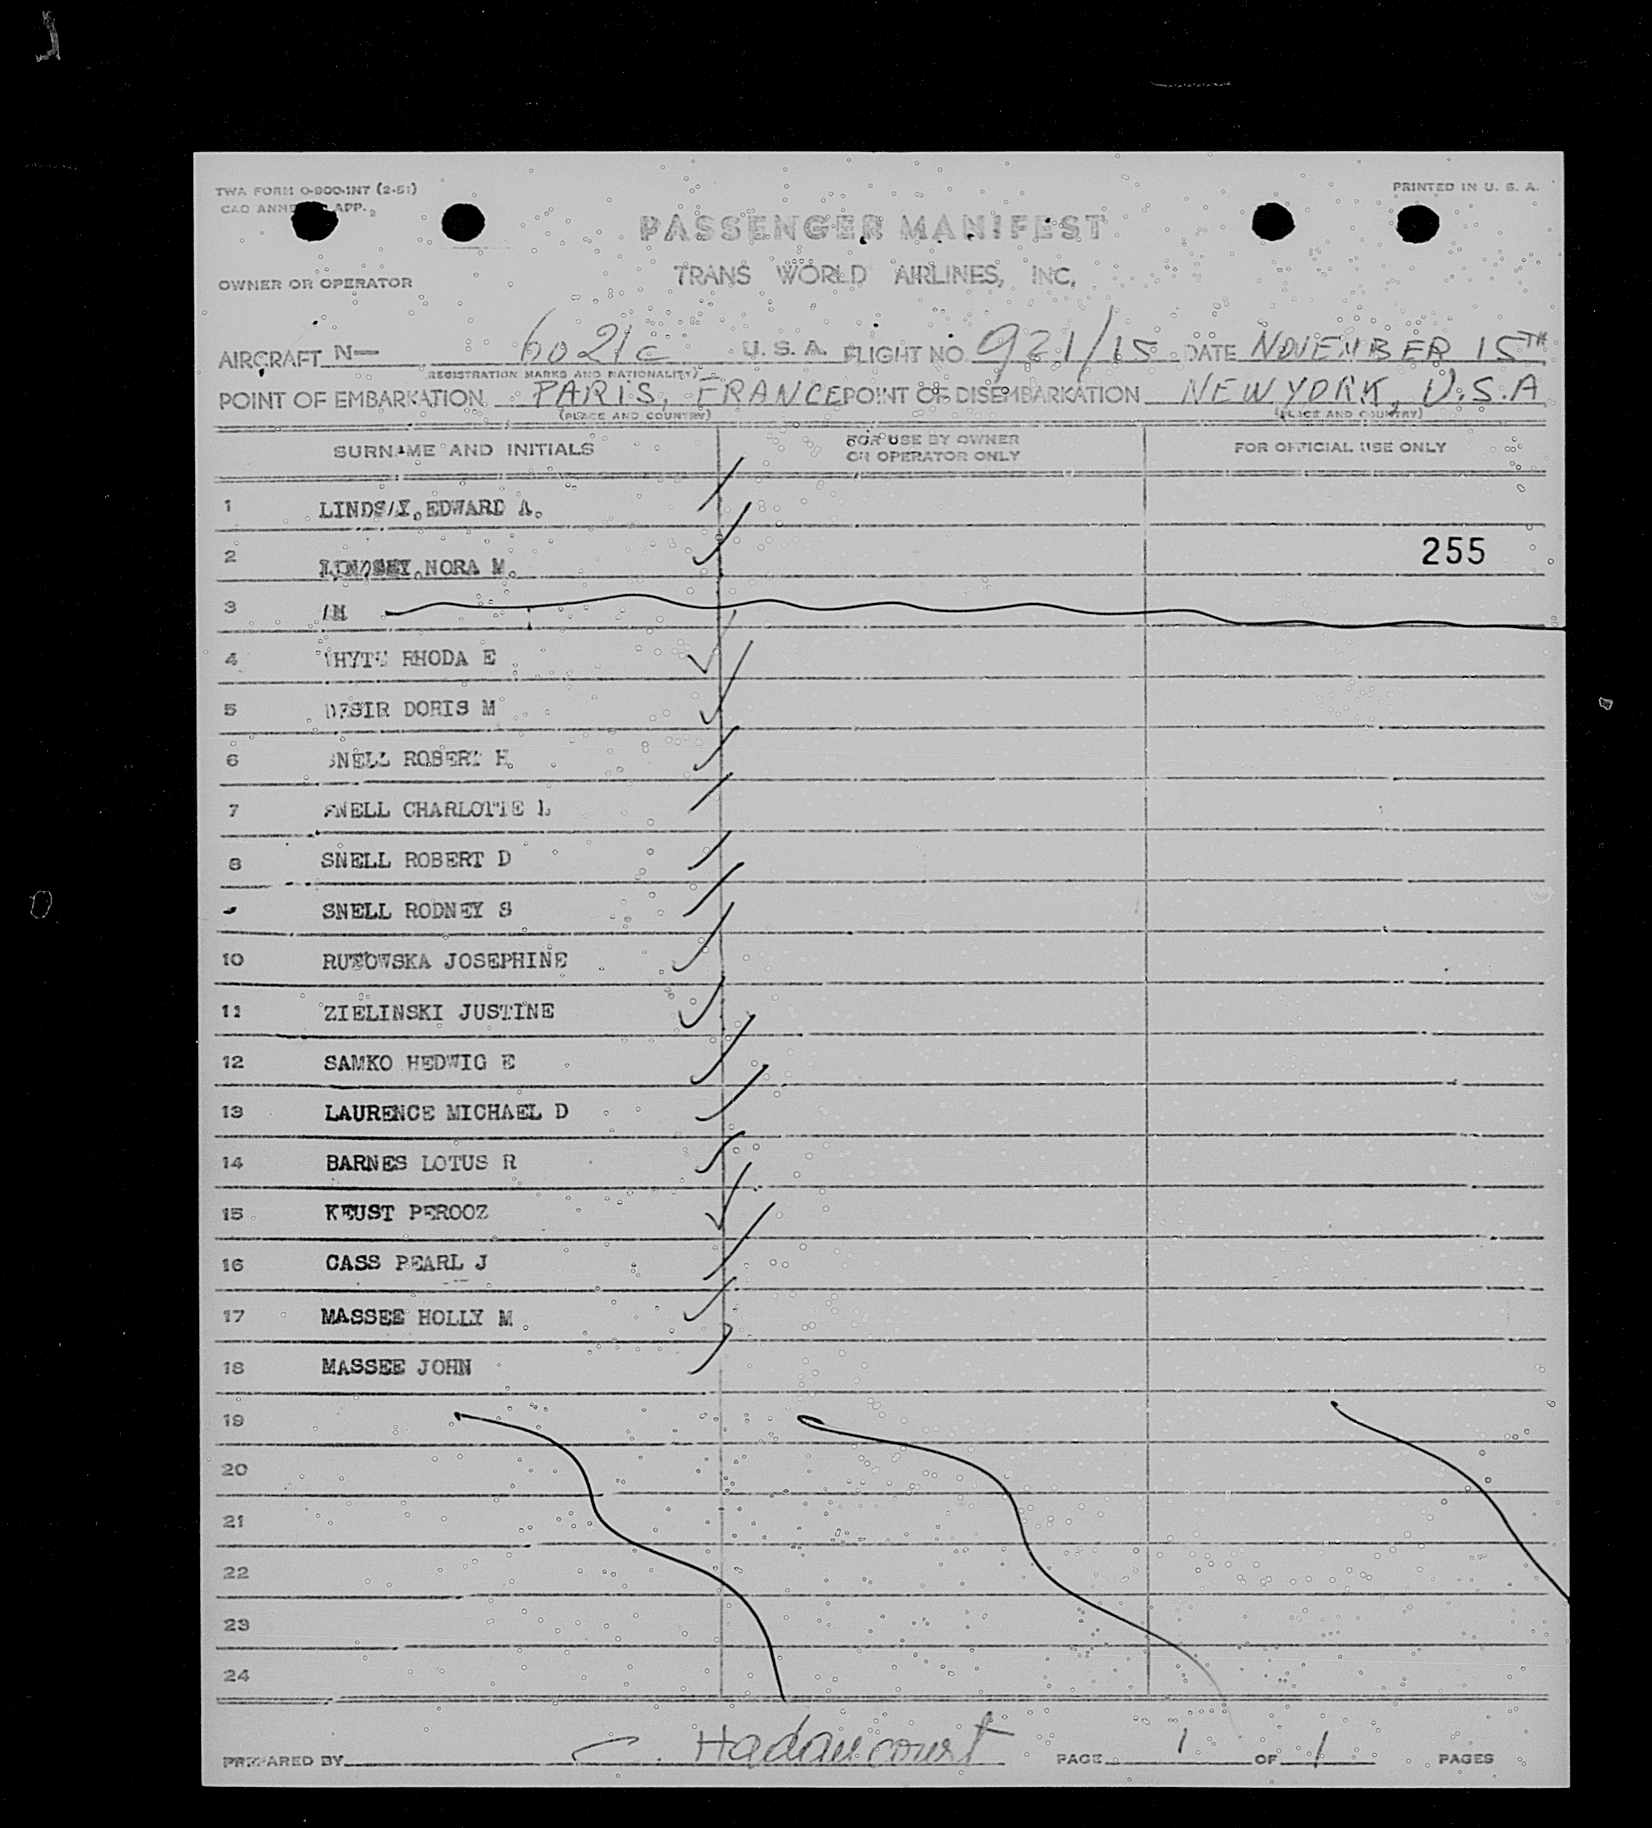 TWA FORM O-800-INT (2-51)
PRINTED IN U. S. A.
CAO APP. 2
PASSENGER MANIFEST
OWNER OR OPERATOR
TRANS WORLD AIRLINES, INC.
AIRCRAFT N— 6021C U. S. A. FLIGHT NO. 921/15 DATE NOVEMBER 15TH
(REGISTRATION MARKS AND NATIONALITY)
POINT OF EMBARKATION PARIS, FRANCE POINT OF DISEMBARKATION NEW YORK, U.S.A
(PLACE AND COUNTRY) (PLACE AND COUNTRY)
SURNAME AND INITIALS
FOR USE BY OWNER
OR OPERATOR ONLY
FOR OFFICIAL USE ONLY
1 LINDSAY, EDWARD A.
2 LINDSEY, NORA M. 255
3
4 WHYTE RHODA E
5 DESIR DORIS M
6 SNELL ROBERT H
7 SNELL CHARLOTTE L
8 SNELL ROBERT D
SNELL RODNEY S
10 RUTOWSKA JOSEPHINE
11 ZIELINSKI JUSTINE
12 SAMKO HEDWIG E
13 LAURENCE MICHAEL D
14 BARNES LOTUS R
15 KEUST PEROOZ
16 CASS PEARL J
17 MASSEE HOLLY M
18 MASSEE JOHN
19
20
21
22
23
24
PREPARED BY C. Hadancourt PAGE 1 OF 1 PAGES